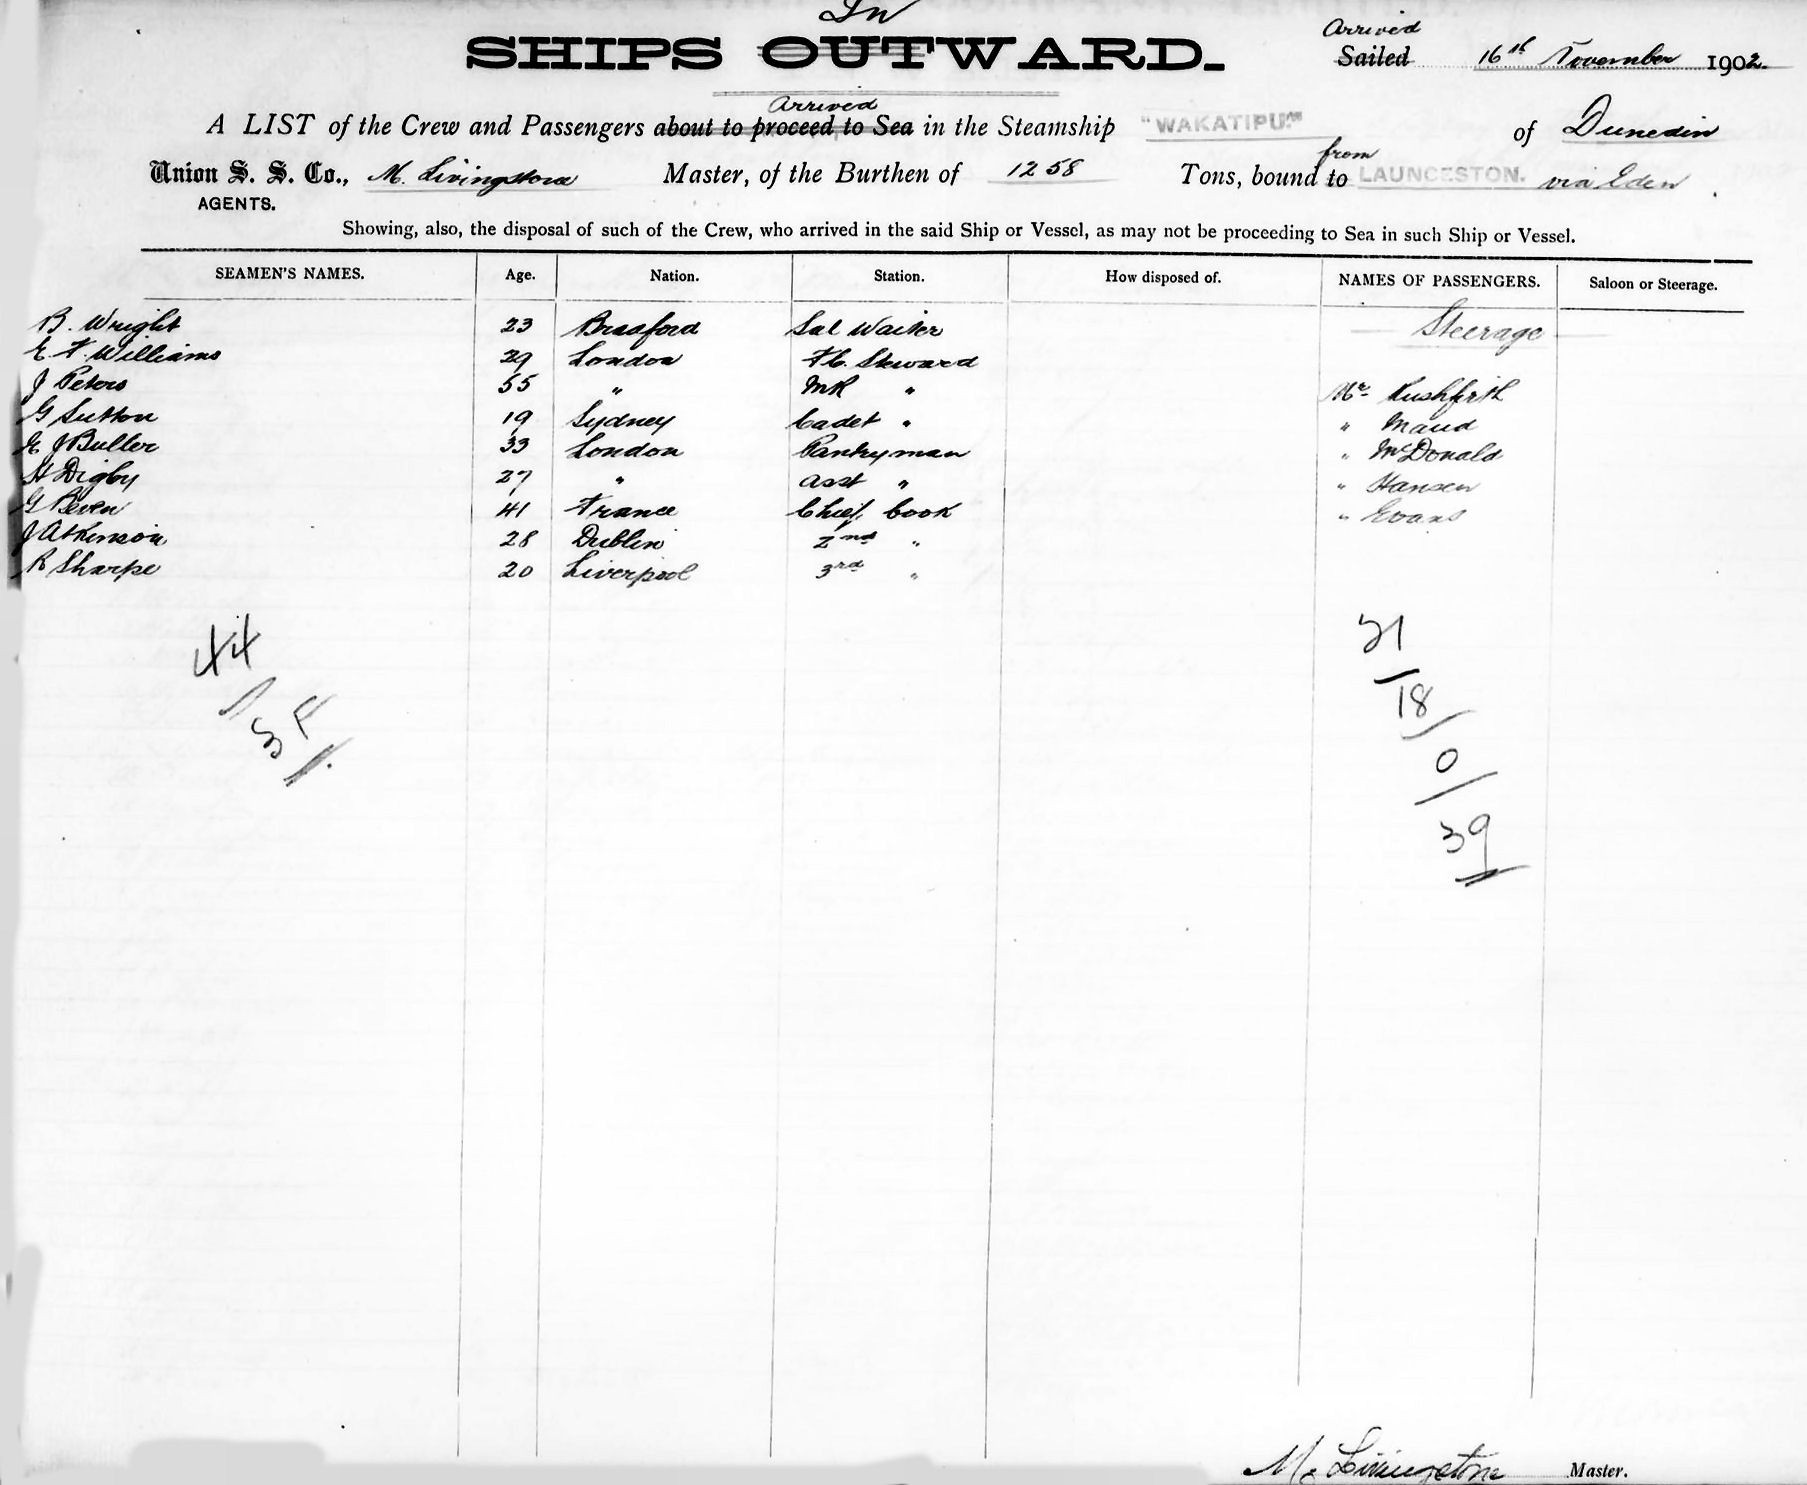 In
SHIPS OUTWARD.
Arrived
Sailed 16th November 1902.
Arrived
A LIST of the Crew and Passengers about to proceed to Sea in the Steamship "WAKATIPU." of Dunedin
from
Union S. S. Co., M. Livingstone Master, of the Burthen of 1258 Tons, bound to LAUNCESTON. via Eden.
AGENTS.
Showing, also, the disposal of such of the Crew, who arrived in the said Ship or Vessel, as may not be proceeding to Sea in such Ship or Vessel.
SEAMEN'S NAMES. Age. Nation. Station. How disposed of. NAMES OF PASSENGERS. Saloon or Steerage.
B. Wright 23 Bradford Sal Waiter Steerage
E F. Williams 29 London F.C. Steward
J Peters 55 " MR " Mr Rushfirth
G Sutton 19 Sydney Cadet " " Maud
E J Butler 33 London Pantryman " McDonald
H Digby 27 " asst " " Hansen
G Beven 41 France Chief Cook " Evans
J Atkinson 28 Dublin 2nd "
R Sharpe 20 Liverpool 3rd "
44
21
18
0
39
M. Livingstone Master.